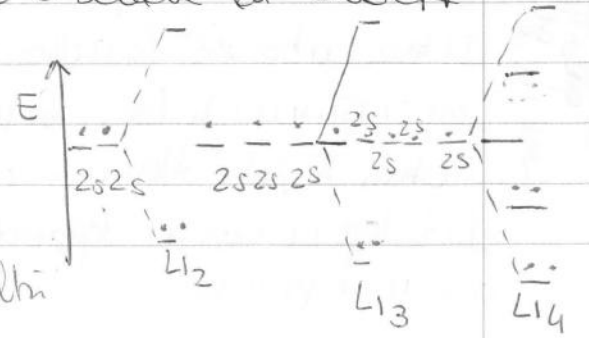 E
2s 2s
2s 2s 2s
2s 2s
2s 2s
Li2
Li3
Li4